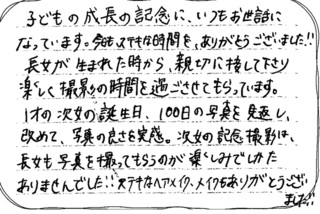 子どもの成長の記念に、いつもお世話に
なっています。今回もステキな時間を、ありがとうございました!!
長女が生まれた時から、親切に接して下さり
楽しく撮影の時間を過ごさせてもらっています。
1才の次女の誕生日、100日の写真を見返し、
改めて、写真の良さを実感。次女の記念撮影は、
長女も写真を撮ってもらうのが楽しみでしかた
ありませんでした!!ステキなヘアメイク、メイクもありがとうござい
ました!!